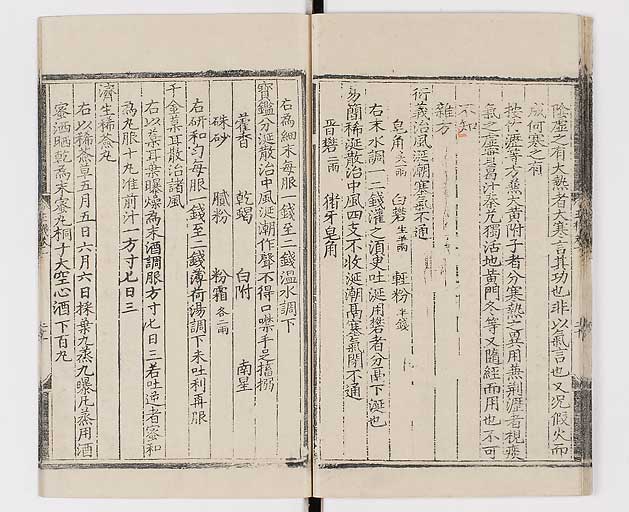 陰虛之有大熱者大寒言其功也非以氣言也又况假火而
成何寒之有
按竹瀝等方蕉大黃附子者分寒熱之異用無荆瀝者視痰
氣之虛實畧汁秦芃獨活地黃門冬等又隨經而用也不可
不知
雜方
衍義治風涎潮塞氣不通
皂角炙一兩 白礬生半兩 輕粉半錢
右末水調一二錢灌之須臾吐涎用礬者分膈下涎也
易簡稀涎散治中風四支不收涎潮鬲塞氣閉不通
晋礬一兩 猪牙皂角
右為細末每服一錢至二錢温水調下
寶鑑分涎散治中風涎潮作聲不得口噤手足搐搦
藿香 乾蝎 白附 南星
硃砂 膩粉 粉霜各二兩
右研和匀每服一錢至二錢薄荷湯調下未吐利再服
千金葉耳散治諸風
右以葉耳葉曝燥為末酒調服方寸七日三若吐逆者蜜和
為丸服十九准前汁一方寸七日三
濟生稀薟丸
右以稀薟草五月五日六月六日採葉九蒸九曝凡蒸用酒
蜜洒晒乾為末蜜丸桐子大空心酒下百丸